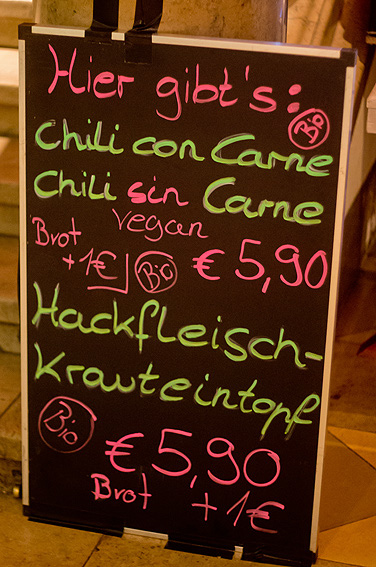 Hier gibt's:
Bio
Chili con Carne
Chili sin Carne
vegan
Brot
+1€
Bio
€ 5,90
Hackfleisch-
Krauteintopf
Bio
€ 5,90
Brot +1€